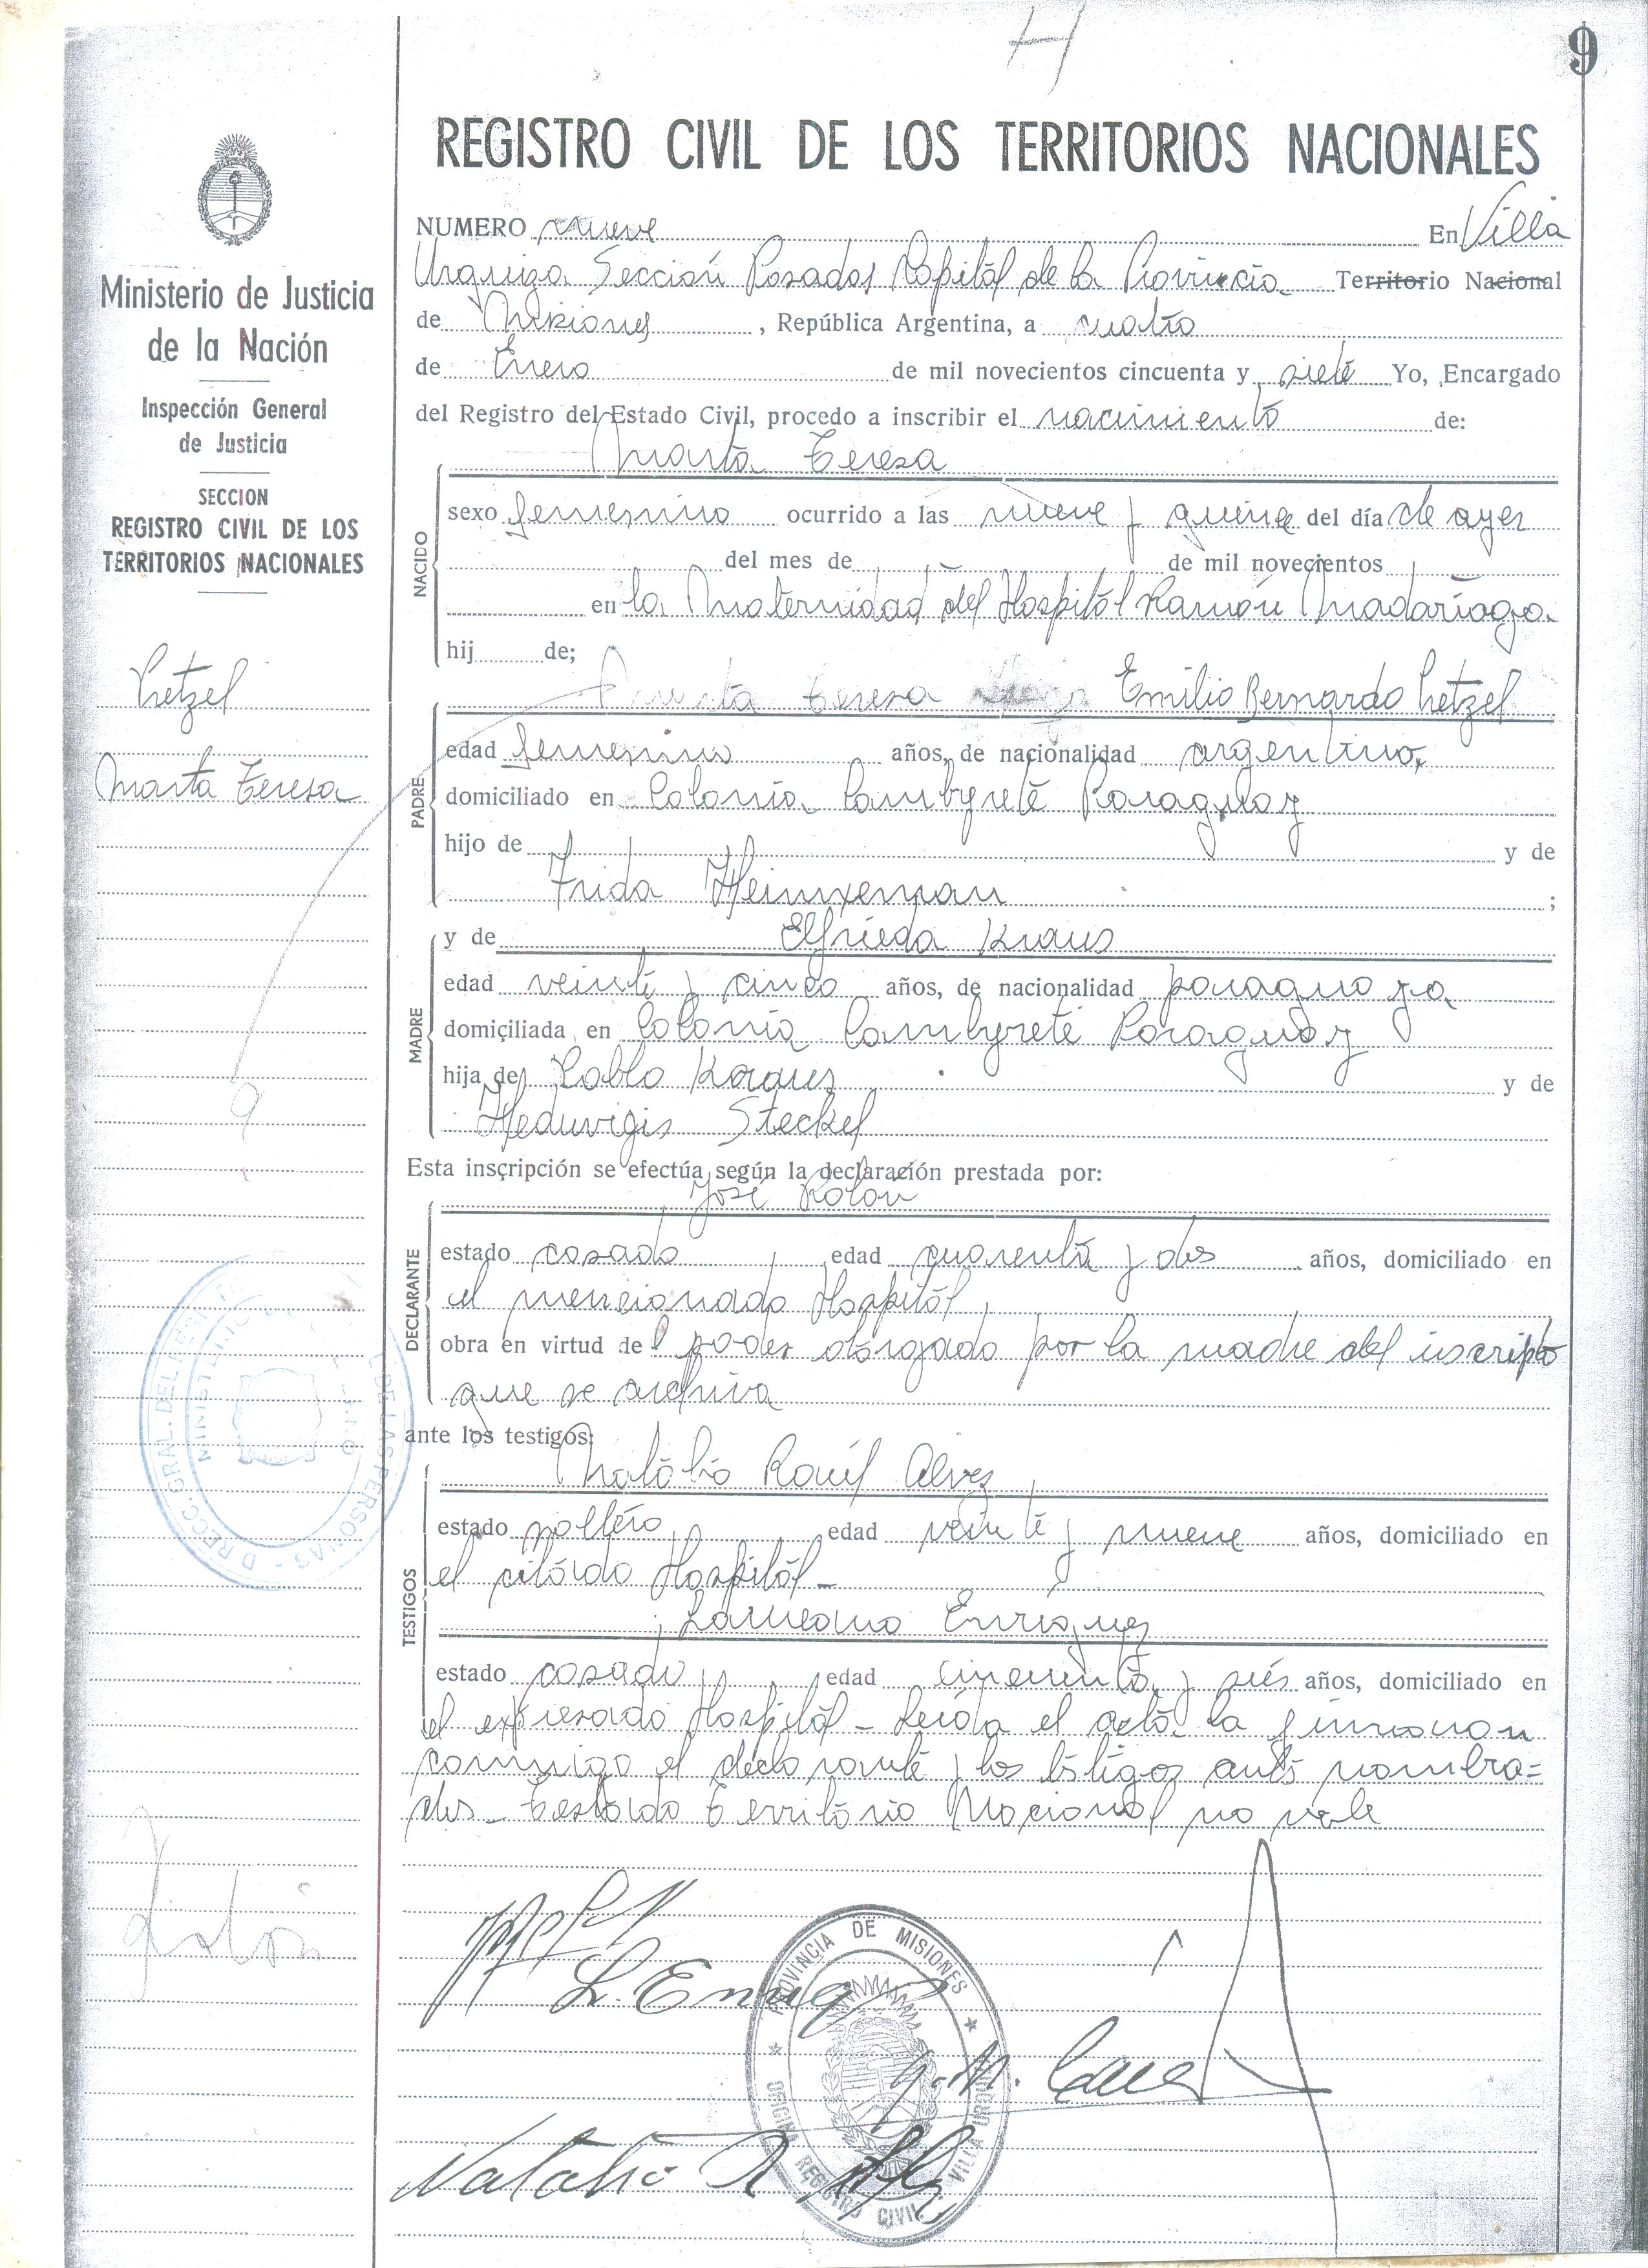 9
REGISTRO CIVIL DE LOS TERRITORIOS NACIONALES
Ministerio de Justicia
de la Nación
Inspección General
de Justicia
SECCION
REGISTRO CIVIL DE LOS
TERRITORIOS NACIONALES
Marta Teresa
9
NUMERO nueve En Villa
Urquiza Sección Posadas Capital de la Provincia Territorio Nacional
de Misiones, República Argentina, a cuatro
de Enero de mil novecientos cincuenta y siete Yo, Encargado
del Registro del Estado Civil, procedo a inscribir el nacimiento de:
Marta Teresa
NACIDO
sexo femenino ocurrido a las nueve y quince del día de ayer
del mes de de mil novecientos
en la Maternidad del Hospital Ramón Madariaga
hij de;
Teresa Emilio Bernardo
PADRE
edad femenino años, de nacionalidad argentino,
domiciliado en Colonia Cambyreté Paraguay
hijo de y de
Frida ;
MADRE
y de Elfrieda Kraus
edad veinte y cinco años, de nacionalidad paraguaya
domiciliada en Colonia Cambyreté Paraguay
hija de Pablo Kraus y de
Heduvigis Steckel
Esta inscripción se efectúa según la declaración prestada por:
José Rolón
DECLARANTE
estado casado, edad cuarenta y dos años, domiciliado en
el mencionado Hospital,
obra en virtud del poder otorgado por la madre del inscripto
que se archiva
ante los testigos:
Natalio Raúl Alvez
TESTIGOS
estado soltero, edad veinte y nueve años, domiciliado en
el citado Hospital -
y Laureano Enriquez
estado casado, edad cincuenta y seis años, domiciliado en
el expresado Hospital - Leída el acta la firmaron
conmigo el declarante y los testigos antes nombra=
dos - Testado Territorio Nacional no vale
L. Enriq
Natalio R
PROVINCIA DE MISIONES
OFICINA REGISTRO CIVIL VILLA URQUIZA